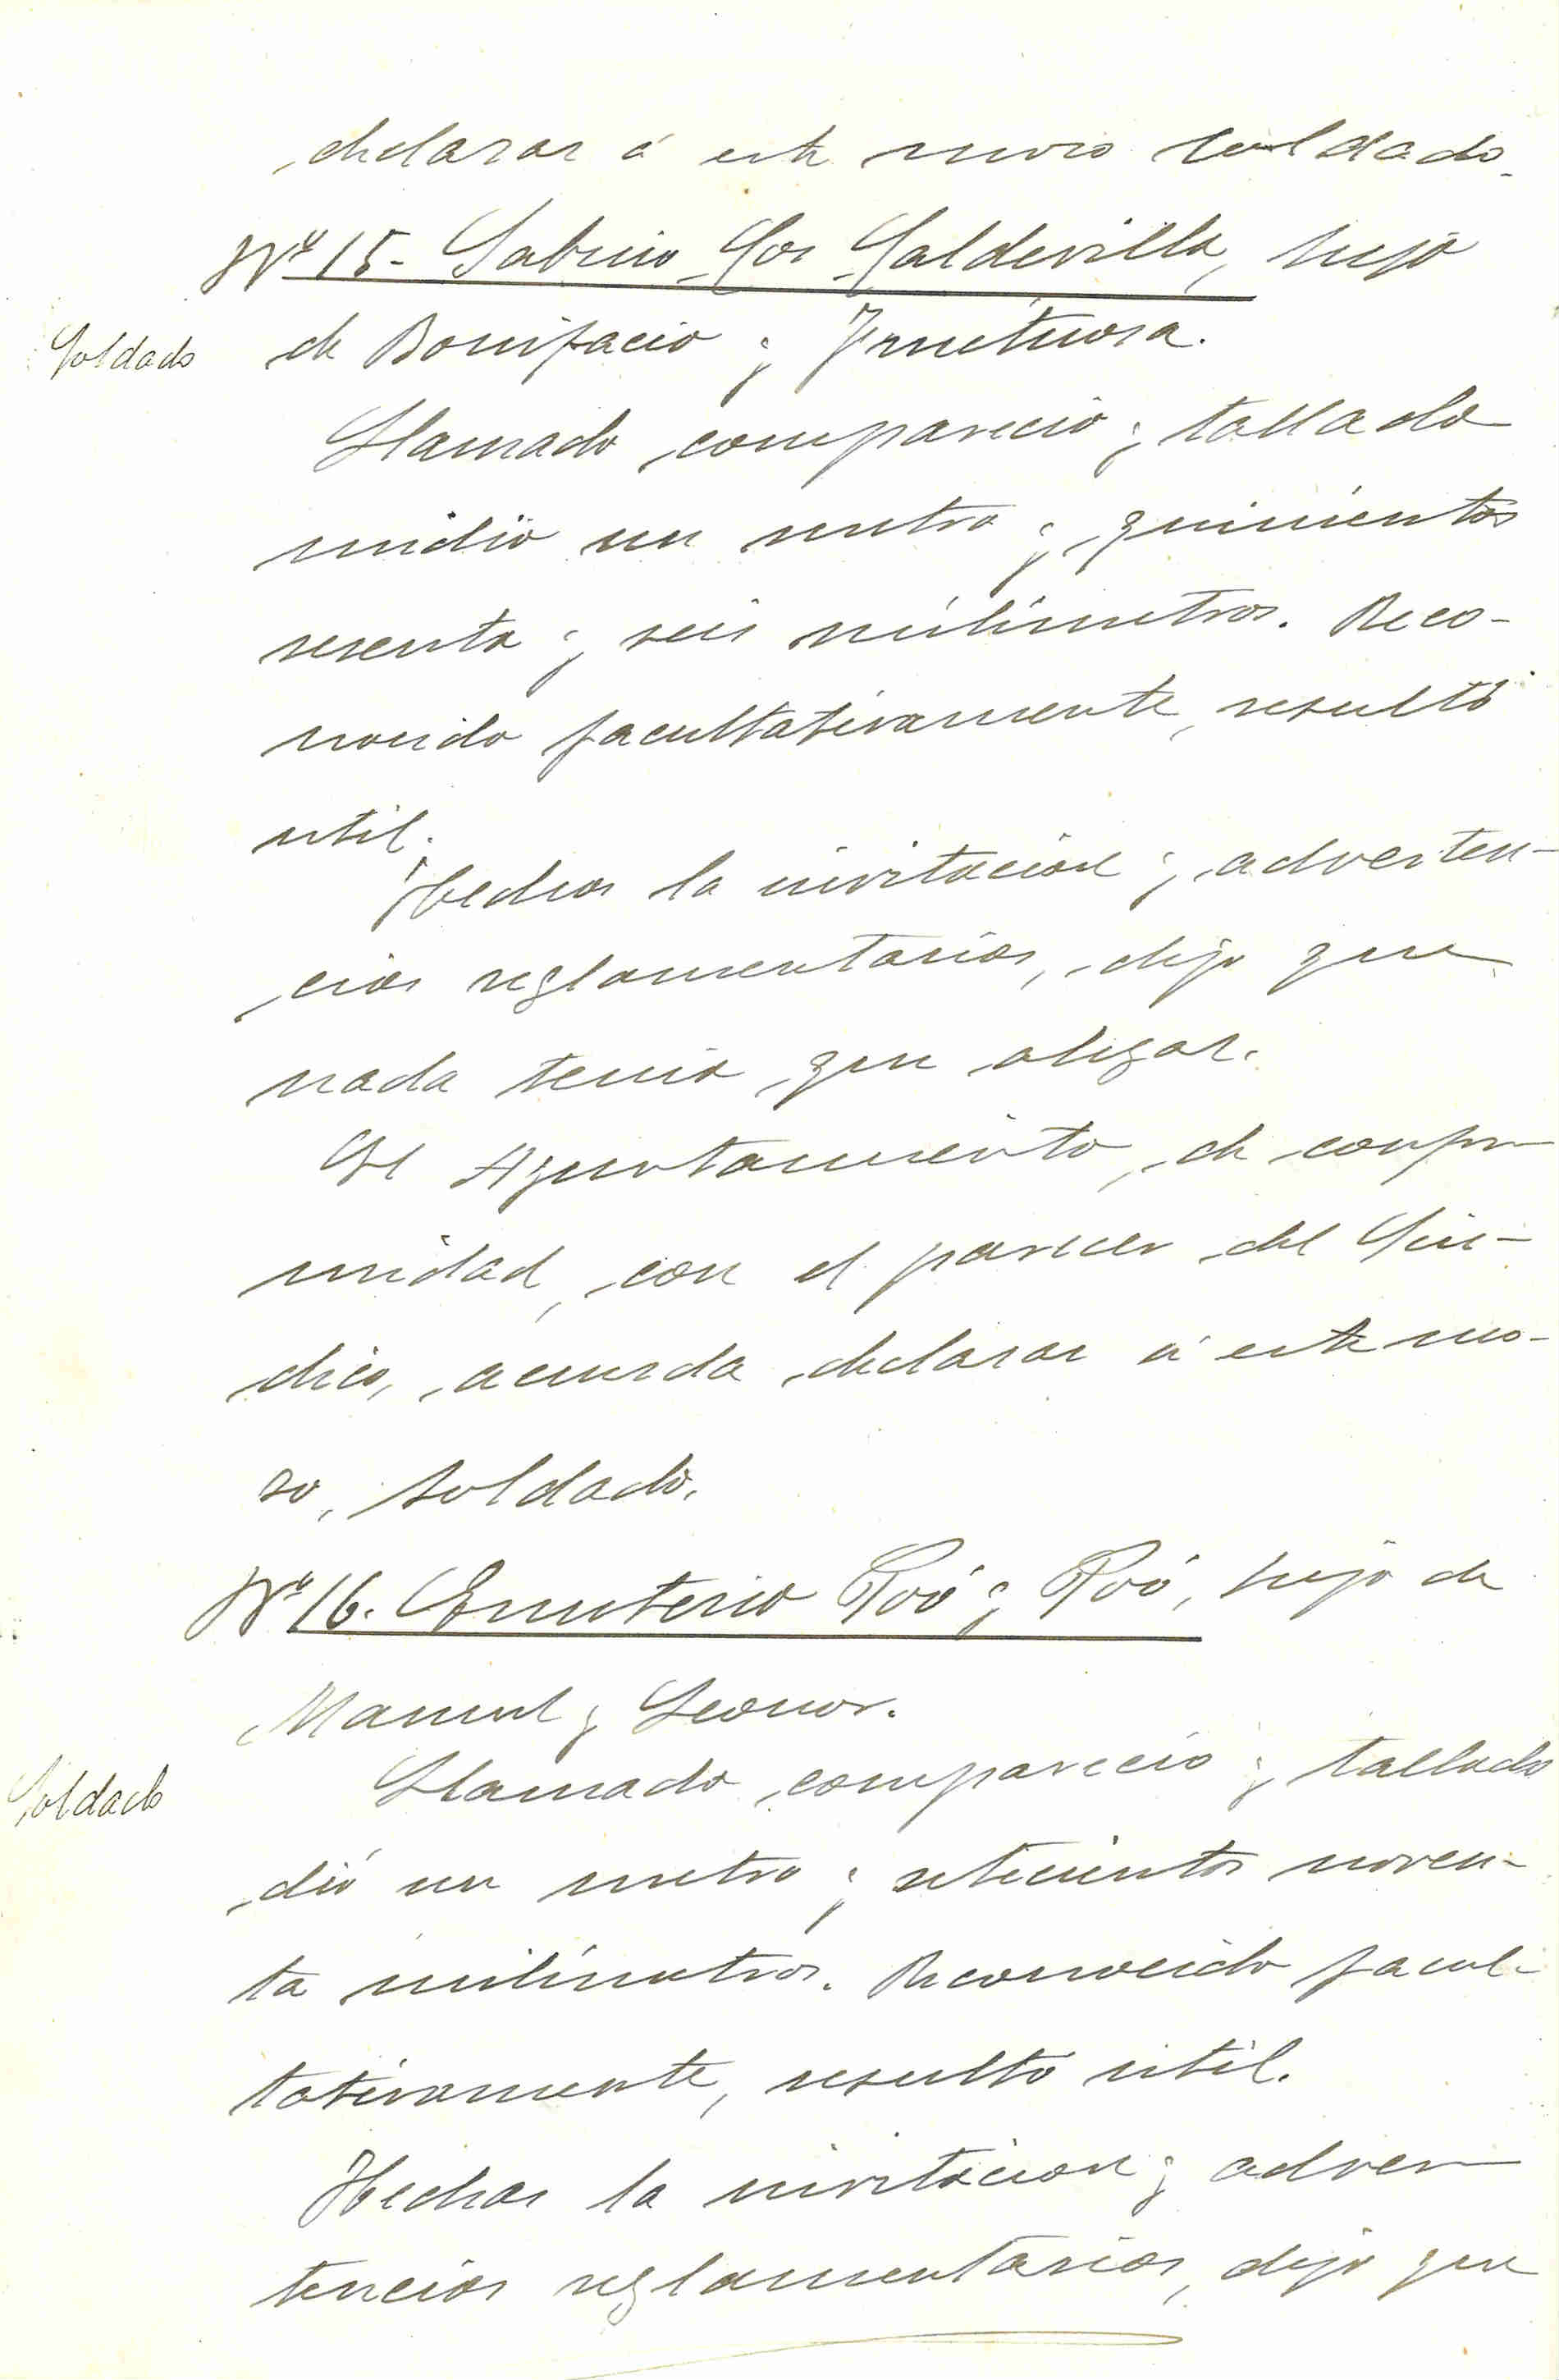 declarar á este mozo soldado.
Nº 15- Sabino Cos Caldevilla, hijo
Soldado
de Bonifacio y Fructuosa.
Llamado compareció y tallado
midió un metro y quinientos
sesenta y seis milímetros. Reco-
nocido facultativamente, resultó
util.
Hechas la invitacion y adverten-
cias reglamentarias, dijo que
nada tenia que alegar.
El Ayuntamiento, de confor
midad, con el parecer del Sín-
dico, acuerda declarar á este mo-
zo, soldado.
Nº 16. Emeterio Poó y Poó, hijo de
Manuel y Leonor.
Soldado
Llamado compareció y tallado
dió un metro y setecientos noven-
ta milímetros. Reconocido facul-
tativamente, resultó util.
Hechas la invitacion y adver
tencias reglamentarias, dijo que